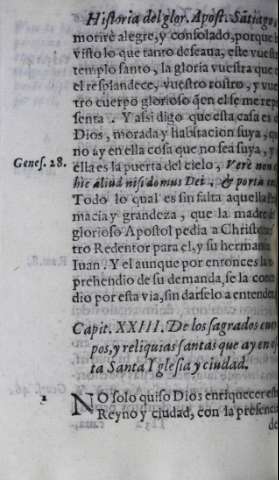 Historia del glor. Apóst. Sãtiago,
morirè alegre, y consolado, porque
visto lo que tanto deseaua, este vuestro
templo santo, la gloria vuestra que
el resplandece, vuestro rostro, y vues
tro cuerpo glorioso ã en el se me repre
senta. Y assi digo que esta casa es
Dios, morada y habitacion suya, que
no ay en ella cosa que no sea suya, y
Genes. 28. ella es la puerta del cielo, Vere non
hic aliud nisi domus Dei, & porta
Todo lo qual es sin falta aquella
macia y grandeza, que la madre
glorioso Apostol pedia a Christo
tro Redentor para el, y su hermano
Iuan. Y el aunque por entonces la
prehendio de su demanda, se la conce
dio por esta via, sin darselo a entender.
Capit. XXIII. De los sagrados cuer
pos, y reliquias santas que ay en es
ta Santa Yglesia y ciudad.
1 NO solo quiso Dios enriquecer este
Reyno y ciudad, con la presencia
de